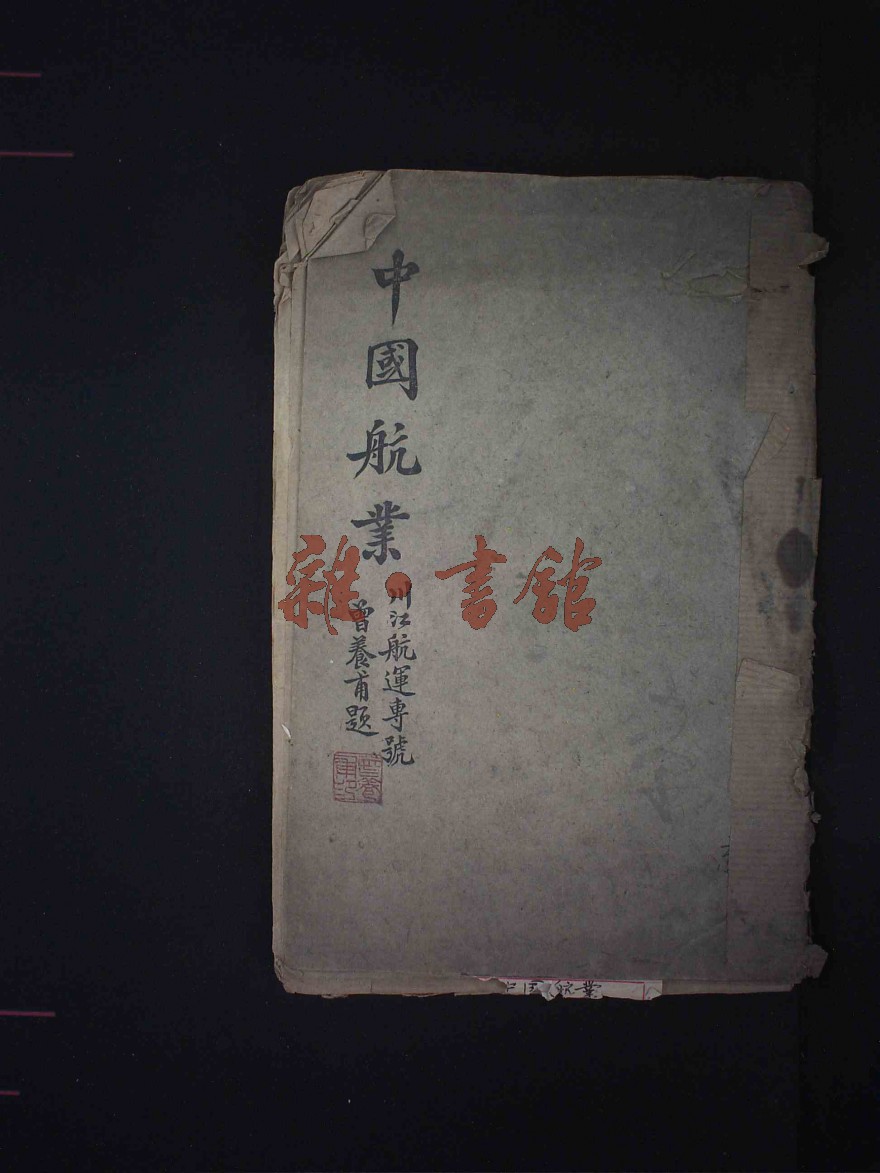 中國航業
川江航運專號
曾養甫題
曾養甫印
雜·書館
中国航業